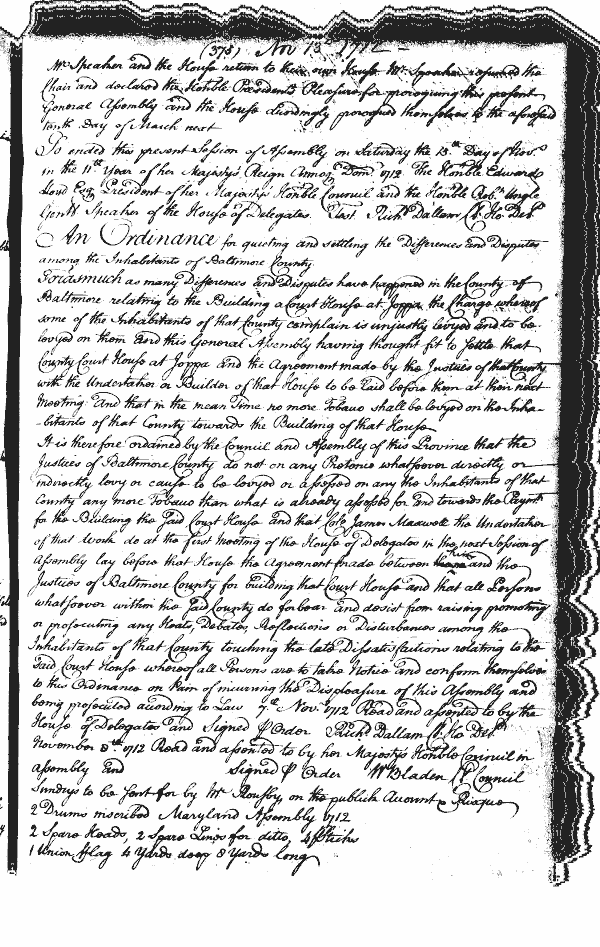 (378) Nov 13th 1712
Mr Speaker and the House return to their own House Mr Speaker resumed the
Chair and declared the Honble President's Pleasure for proroguing this present
General Assembly and the House accordingly prorogued themselves to the aforesaid
tenth Day of March next
So ended this present Session of Assembly on Saturday the 15th Day of Novr
in the 11th Year of her Majestys Reign Annoq Dom. 1712 The Honble Edward
Loyd Esq President of her Majestys Honble Council and the Honble Robt Ungle
Gent Speaker of the House of Delegates. Test Richd Dallam Cl. Ho Del
An Ordinance for quieting and settling the Differences and Disputes
among the Inhabitants of Baltimore County
Forasmuch as many Differences and Disputes have happened in the County of
Baltimore relating to the Building a Court House at Joppa the Charge whereof
some of the Inhabitants of that County complain is unjustly levyed and to be
levyed on them and this General Assembly having thought fit to settle that
County Court House at Joppa and the Agreement made by the Justices of that County
with the Undertaker or Builder of that House to be laid before them at their next
Meeting And that in the mean Time no more Tobacco shall be levyed on the Inha-
-bitants of that County towards the Building of that House
It is therefore ordained by the Council and Assembly of this Province that the
Justices of Baltimore County do not on any Pretence whatsoever directly or
indirectly levy or cause to be levyed or assessed on any the Inhabitants of that
County any more Tobacco than what is already assessed for and towards the Paymt
for the Building the said Court House and that Colo James Maxwell the Undertaker
of that Work do at the first Meeting of the House of Delegates in the next Session of
Assembly lay before that House the Agreement made between him and the
Justices of Baltimore County for building that Court House and that all Persons
whatsoever within the said County do forbear and desist from raising promoting
or prosecuting any Heats, Debates, Reflections or Disturbances among the
Inhabitants of that County touching the late Dissatisfactions relating to the
said Court House whereof all Persons are to take Notice and conform themselves
to this Ordinance on Pain of incurring the Displeasure of this Assembly and
being prosecuted according to Law 7th Nov. 1712 Read and assented to by the
House of Delegates and Signed P Order Richd Dallam Cl. Ho Del
November 8th 1712 Read and assented to by her Majestys Honble Council in
Assembly and Signed P Order W Bladen Cl Council
Sundrys to be sent for by Mr Rousby on the publick Account & Risque
2 Drums inscribed Maryland Assembly 1712
2 Spare Heads, 2 Spare Lines for ditto, 4 Sticks
1 Union Flag 4 Yards deep 8 Yards long